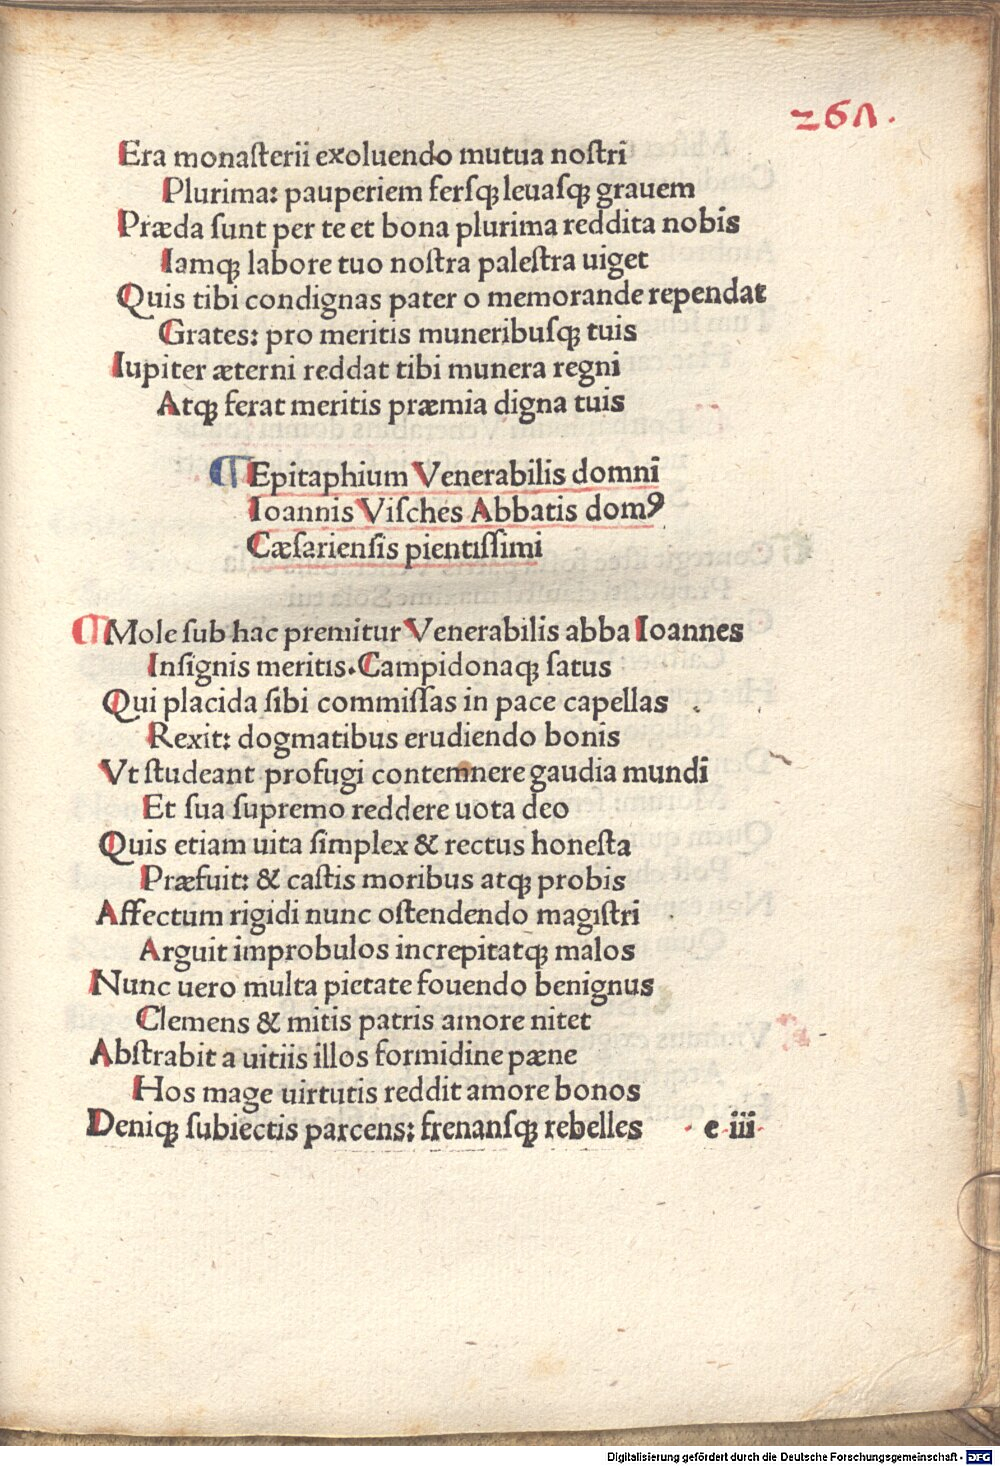 267.
Era monaſterii exoluendo mutua noſtri
Plurima: pauperiem ferſqꝫ leuaſqꝫ grauem
Præda ſunt per te et bona plurima reddita nobis
Iamqꝫ labore tuo noſtra paleſtra uiget
Quis tibi condignas pater o memorande rependat
Grates: pro meritis muneribuſqꝫ tuis
Iupiter æterni reddat tibi munera regni
Atqꝫ ferat meritis præmia digna tuis
¶ Epitaphium Venerabilis domni
Ioannis Viſches Abbatis domꝰ
Cæſarienſis pientiſſimi
¶ Mole ſub hac premitur Venerabilis abba Ioannes
Inſignis meritis. Campidonaqꝫ ſatus
Qui placida ſibi commiſſas in pace capellas
Rexit: dogmatibus erudiendo bonis
Vt ſtudeant profugi contemnere gaudia mundi
Et ſua ſupremo reddere uota deo
Quis etiam uita ſimplex & rectus honeſta
Præfuit: & caſtis moribus atqꝫ probis
Affectum rigidi nunc oſtendendo magiſtri
Arguit improbulos increpitatqꝫ malos
Nunc uero multa pietate fouendo benignus
Clemens & mitis patris amore nitet
Abſtrabit a uitiis illos formidine pæne
Hos mage uirtutis reddit amore bonos
Deniqꝫ ſubiectis parcens: frenanſqꝫ rebelles e iii
Digitalisierung gefördert durch die Deutsche Forschungsgemeinschaft - DFG